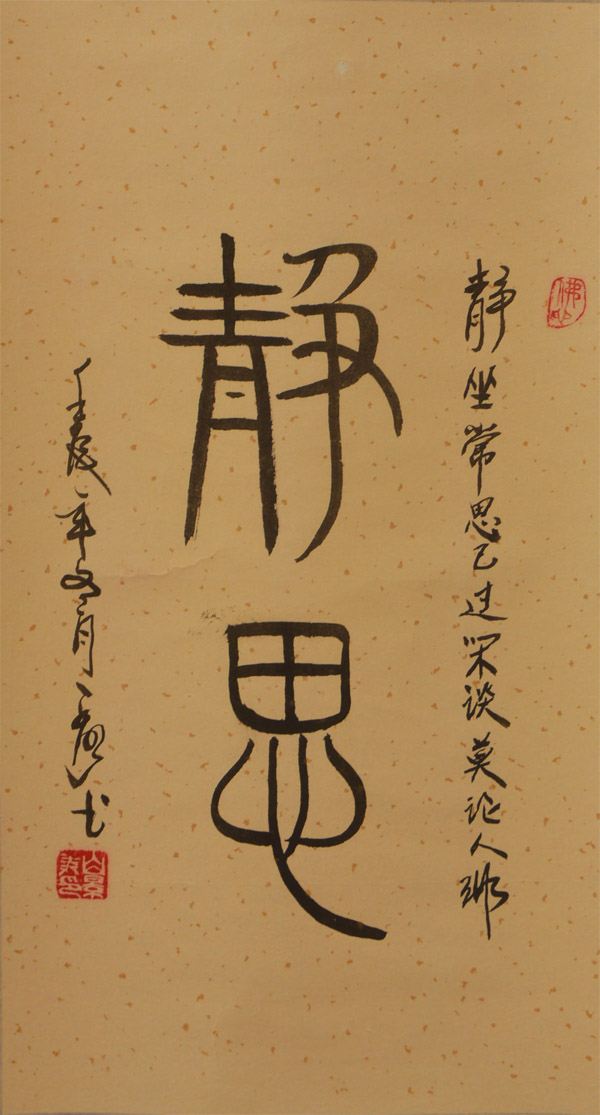 静坐常思己过闲谈莫论人非
静思
壬辰年月书